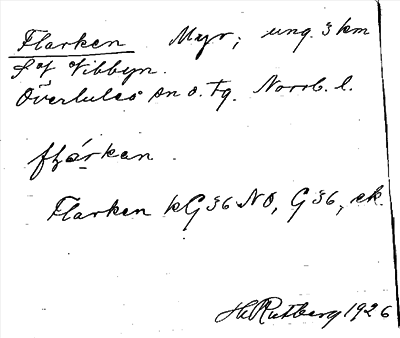 Flarken Myr; ung. 3 km
S of Vibbyn.
Överlulea sn o. tg. Norrb. l.
Flarken kG36NO, G36, ek.
H. Rutberg 1926